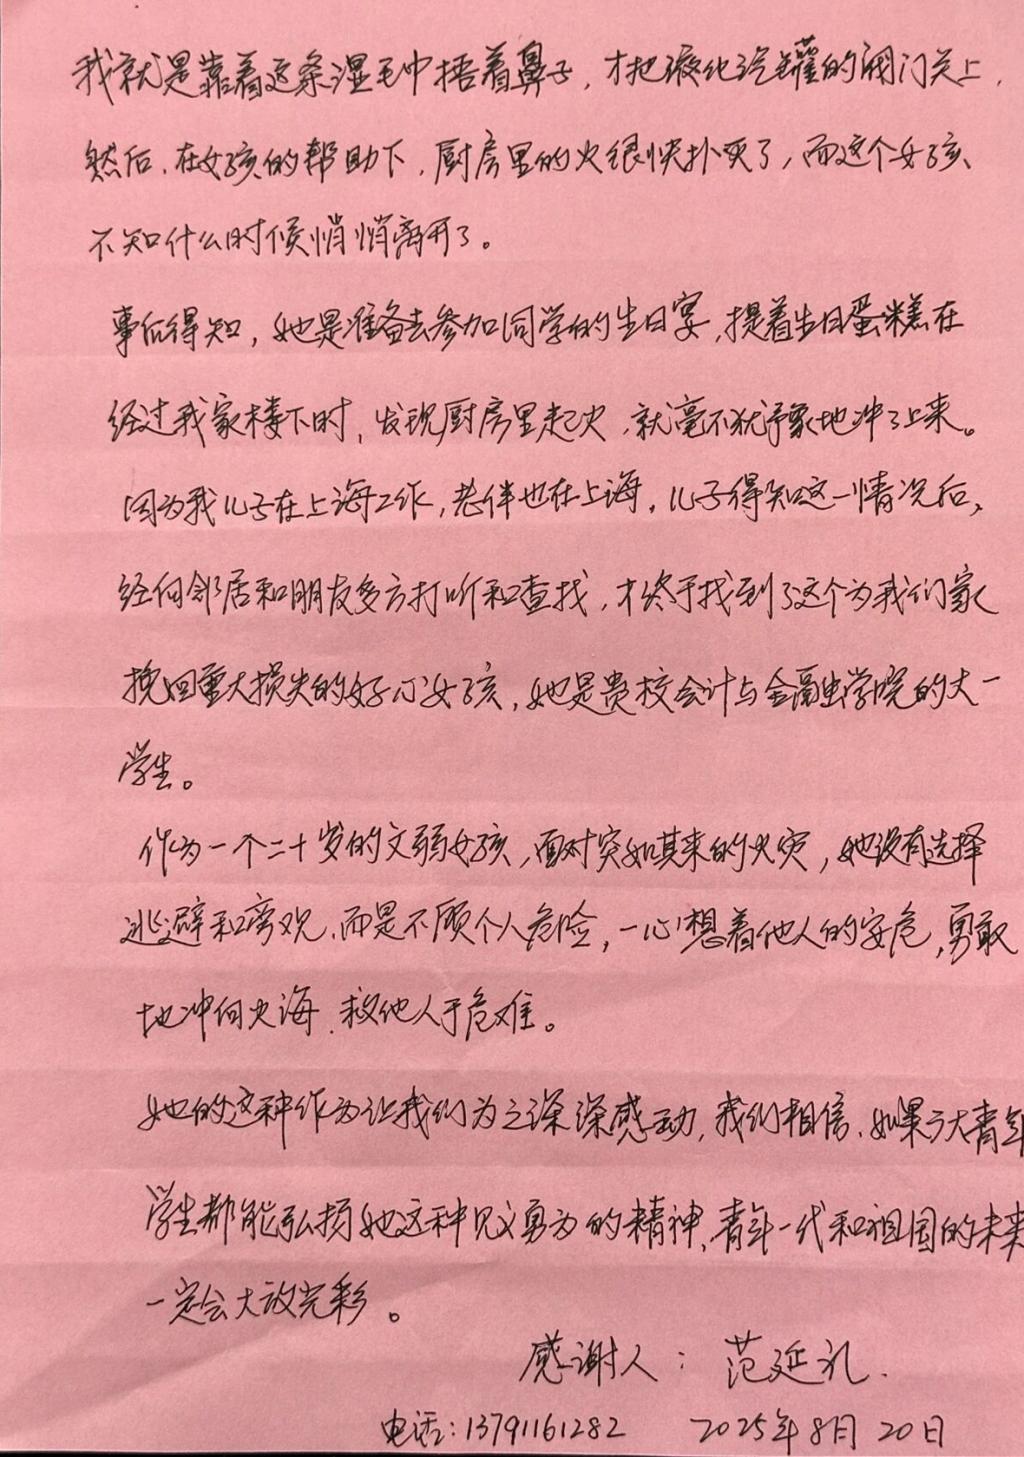 我就是靠着这条湿毛巾捂着鼻子，才把液化汽罐的阀门关上，
然后，在女孩的帮助下，厨房里的火很快扑灭了，而这个女孩、
不知什么时候悄悄离开了。
事后得知，她是准备去参加同学的生日宴，提着生日蛋糕在
经过我家楼下时，发现厨房里起火，就毫不犹予象地冲了上来。
因为我儿子在上海工作，老伴也在上海，儿子得知这一情况后，
经向邻居和朋友多方打听和查找，才终于找到了这个为我们家
挽回重大损失的好心女孩，她是贵校会计与金融学院的大一
学生。
作为一个二十岁的文弱女孩，面对突如其来的火灾，她没有选择
逃避和旁观，而是不顾个人危险，一心想着他人的安危，勇敢
地冲向火海，救他人于危难。
她的这种作为让我们为之深深感动，我们相信，如果广大青年
学生都能弘扬她这种见义勇为的精神，青年一代和祖国的未来
一定会大放光彩。
感谢人：范延礼.
电话：13791161282 2025年8月20日